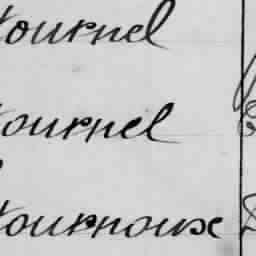 Tournel
Tournel
Tournoux